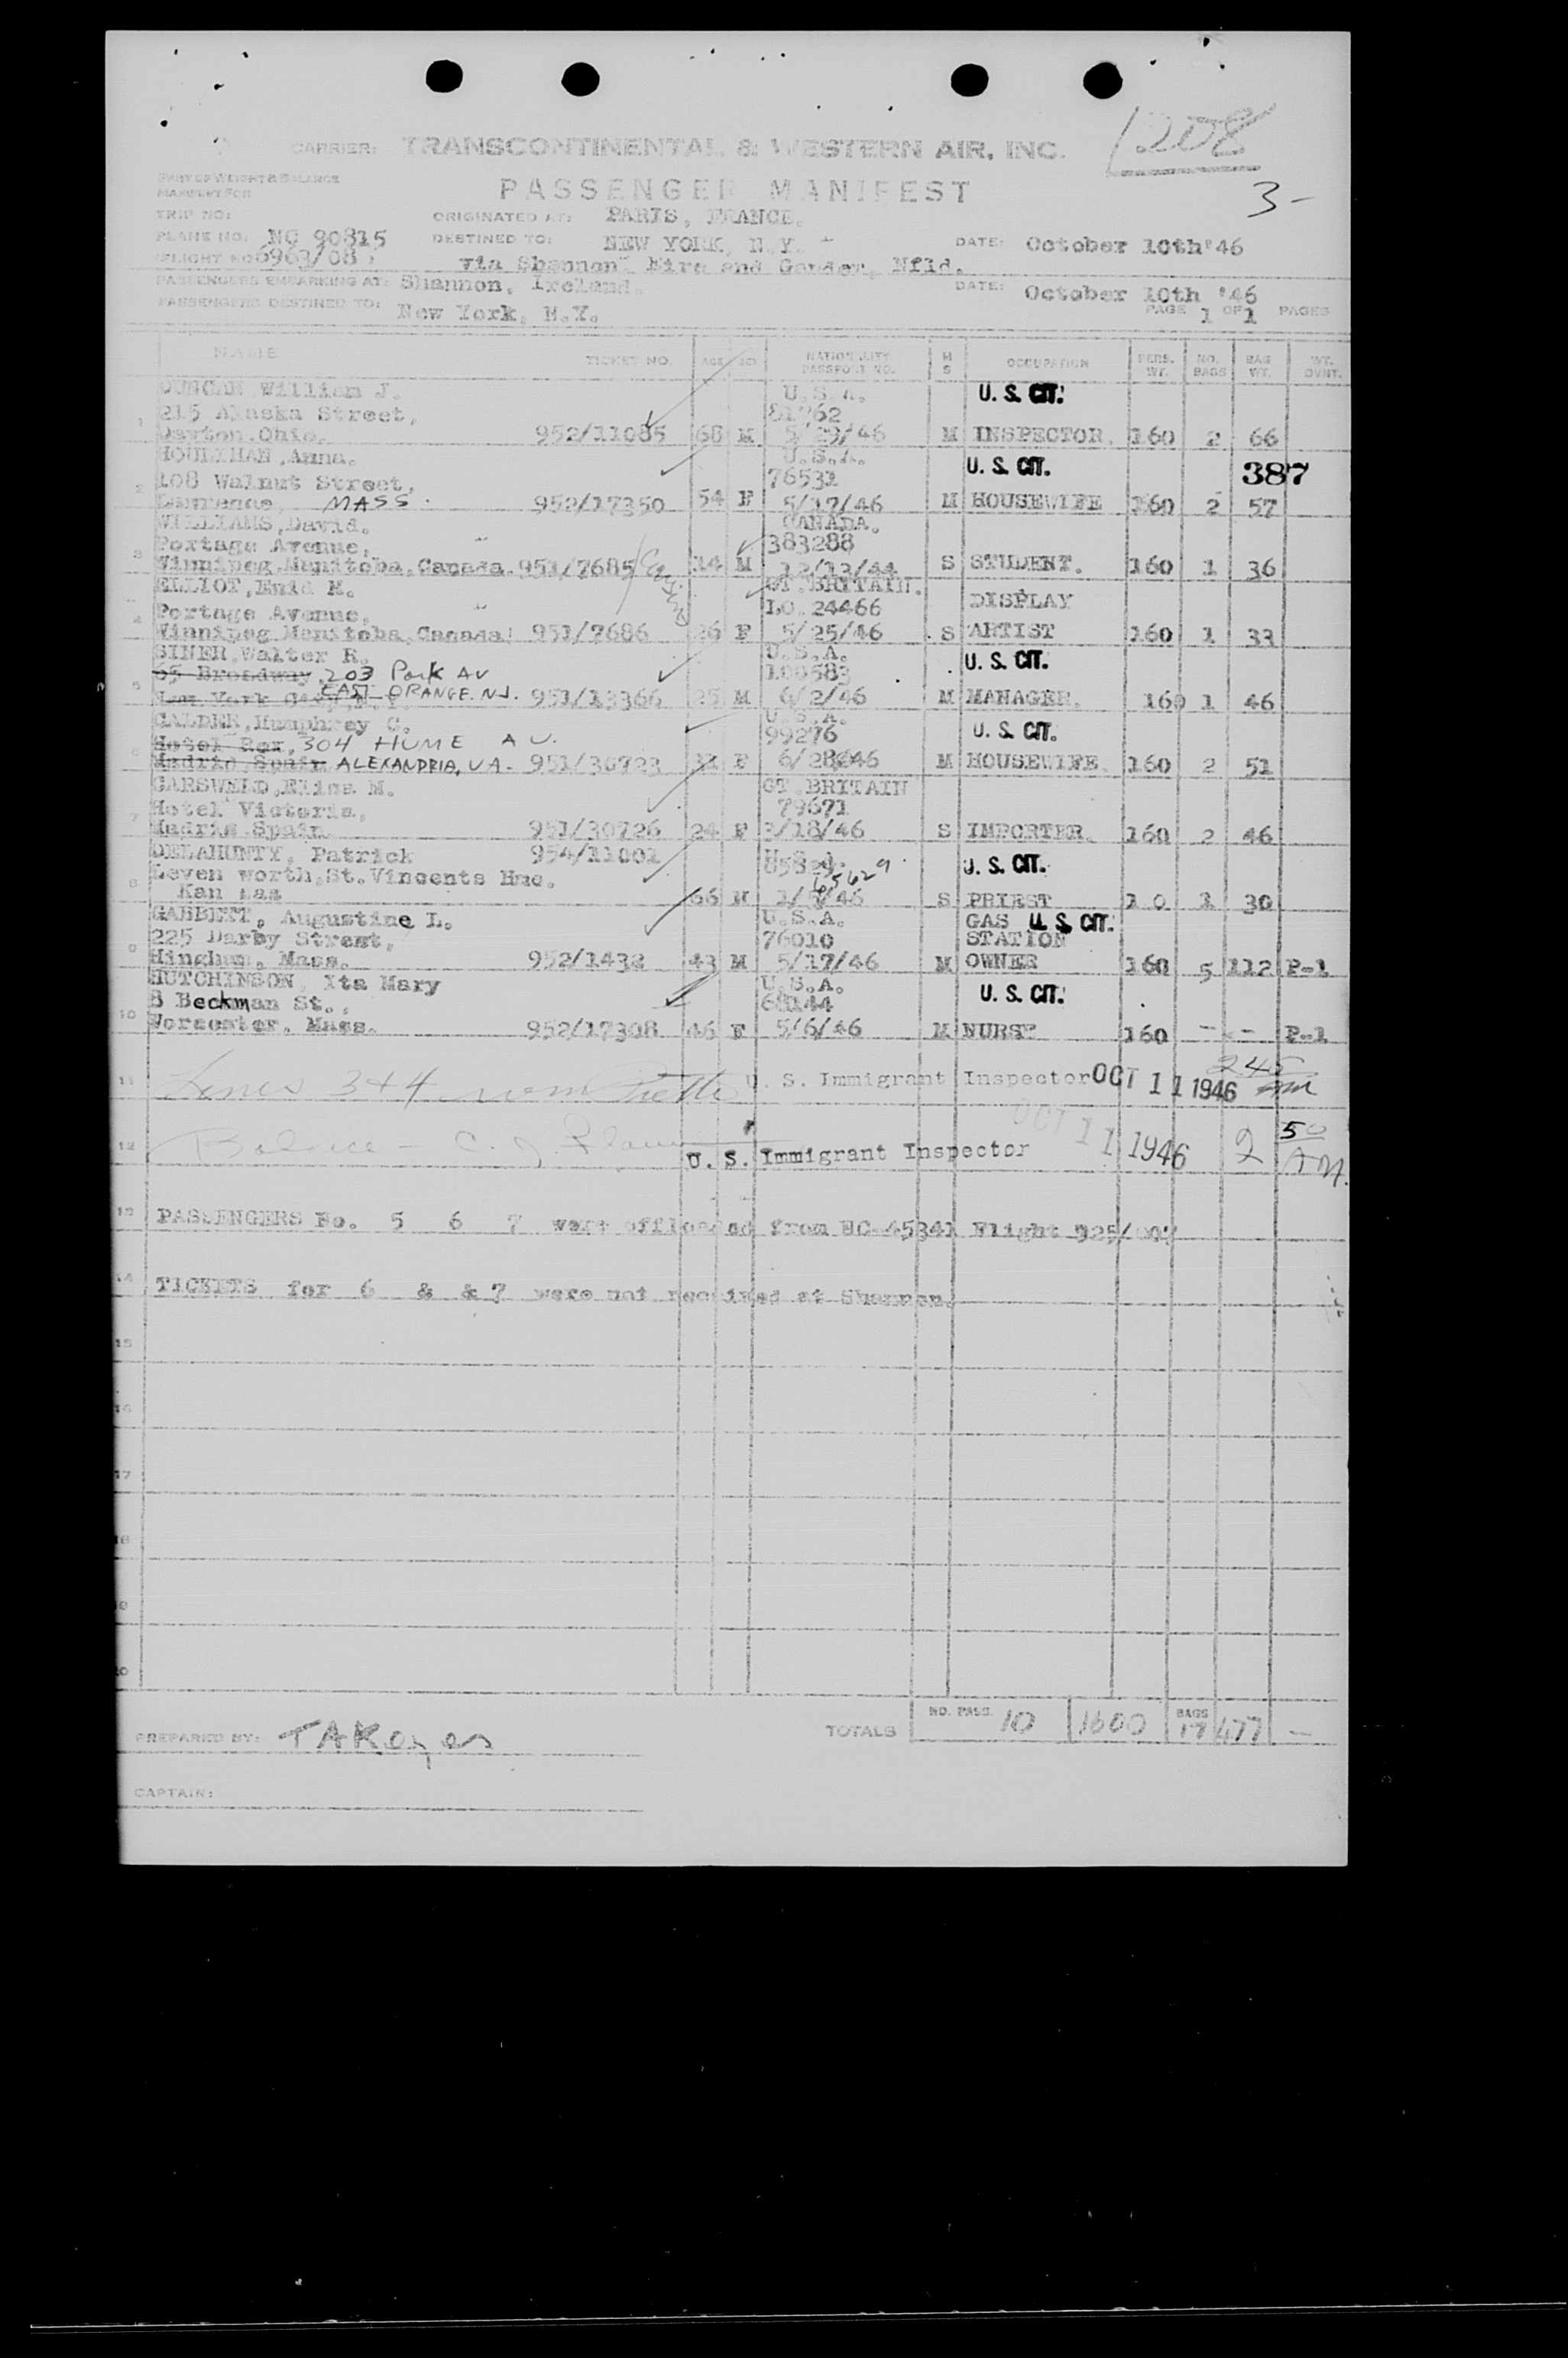 1208
CARRIER: TRANSCONTINENTAL & WESTERN AIR, INC.
PART OF WEIGHT & BALANCE
MANIFEST FOR
PASSENGER MANIFEST
3-
TRIP NO:
ORIGINATED AT: PARIS, FRANCE.
PLANE NO. NC 90815
DESTINED TO: NEW YORK, N.Y.
DATE: October 10th'46
FLIGHT NO 6963/08
via Shannon Eire and Gander, Nfld.
PASSENGERS EMBARKING AT: Shannon, Ireland.
DATE: October 10th '46
PASSENGERS DESTINED TO: New York, N.Y.
PAGE 1 OF 1 PAGES
NAME TICKET NO. AGE NATIONALITY PASSPORT NO. M S OCCUPATION PERS. WT. NO. BAGS BAG WT. WT. OVNT.
DUNCAN William J. U.S.A. U. S. CIT.
215 Alaska Street, 81762
1 Dayton.Ohio. 952/11085 68 M 5/29/46 M INSPECTOR. 160 2 66
HOULIHAN,Anna. U.S.A. U. S. CIT. 387
108 Walnut Street, 76531
2 Lawrence, MASS. 952/17350 54 F 5/17/46 M HOUSEWIFE 160 2 57
WILLIAMS,David. CANADA.
Portage Avenue, 383288
3 Winnipeg.Manitoba.Canada. 951/7685 14 M 12/13/44 S STUDENT. 160 1 36
ELLIOT,Enid M. GT.BRITAIN.
Portage Avenue, LO.24466 DISPLAY
4 Winnipeg Manitoba,Canada. 951/7686 26 F 5/25/46 S ARTIST 160 1 33
SINER,Walter R. U.S.A. U. S. CIT.
65 Broadway, 203 Park AV 100583
5 New York City, N.Y. EAST ORANGE. N.J. 951/13366 25 M 6/2/46 M MANAGER. 160 1 46
CALDER,Humphrey C. U.S.A.
Hotel Rex, 304 HUME AV. 99276 U. S. CIT.
6 Madrid Spain ALEXANDRIA, VA- 951/30723 F 6/28/46 M HOUSEWIFE. 160 2 51
GARSWELD,Elisa M. GT.BRITAIN
Hotel Victoria, 79671
7 Madrid Spain 951/30726 24 F 3/18/46 S IMPORTER. 160 2 46
DELAHUNTY, Patrick 954/11001 U. S. CIT.
Leven worth,St.Vincents Hme. 65629
8 Kan sas 66 M 1/5/46 S PRIEST 1 0 1 30
GABBETT, Augustine L. U.S.A. GAS U. S. CIT.
225 Darby Street, 76010 STATION
9 Hingham, Mass. 952/1432 43 M 5/17/46 M OWNER 160 5 112 P-1
HUTCHINSON, Ita Mary U.S.A.
8 Beckman St., 68144 U. S. CIT.
10 Worcester. Mass. 952/17308 46 F 5/6/46 M NURSE 160 - - P-1
245
11 Lines 3+4 U. S. Immigrant Inspector OCT 11 1946 am
OCT 11 1946 2 50
12 Balance - C. J. U. S. Immigrant Inspector AM.
13 PASSENGERS No. 5 6 7 were offloaded from NC-45341 Flight 925/
14 TICKETS for 6 & & 7 were not received at Shannon.
15
16
17
18
19
20
PREPARED BY: TAKeyes
TOTALS NO. PASS. 10 1600 BAGS 17 477 -
CAPTAIN: